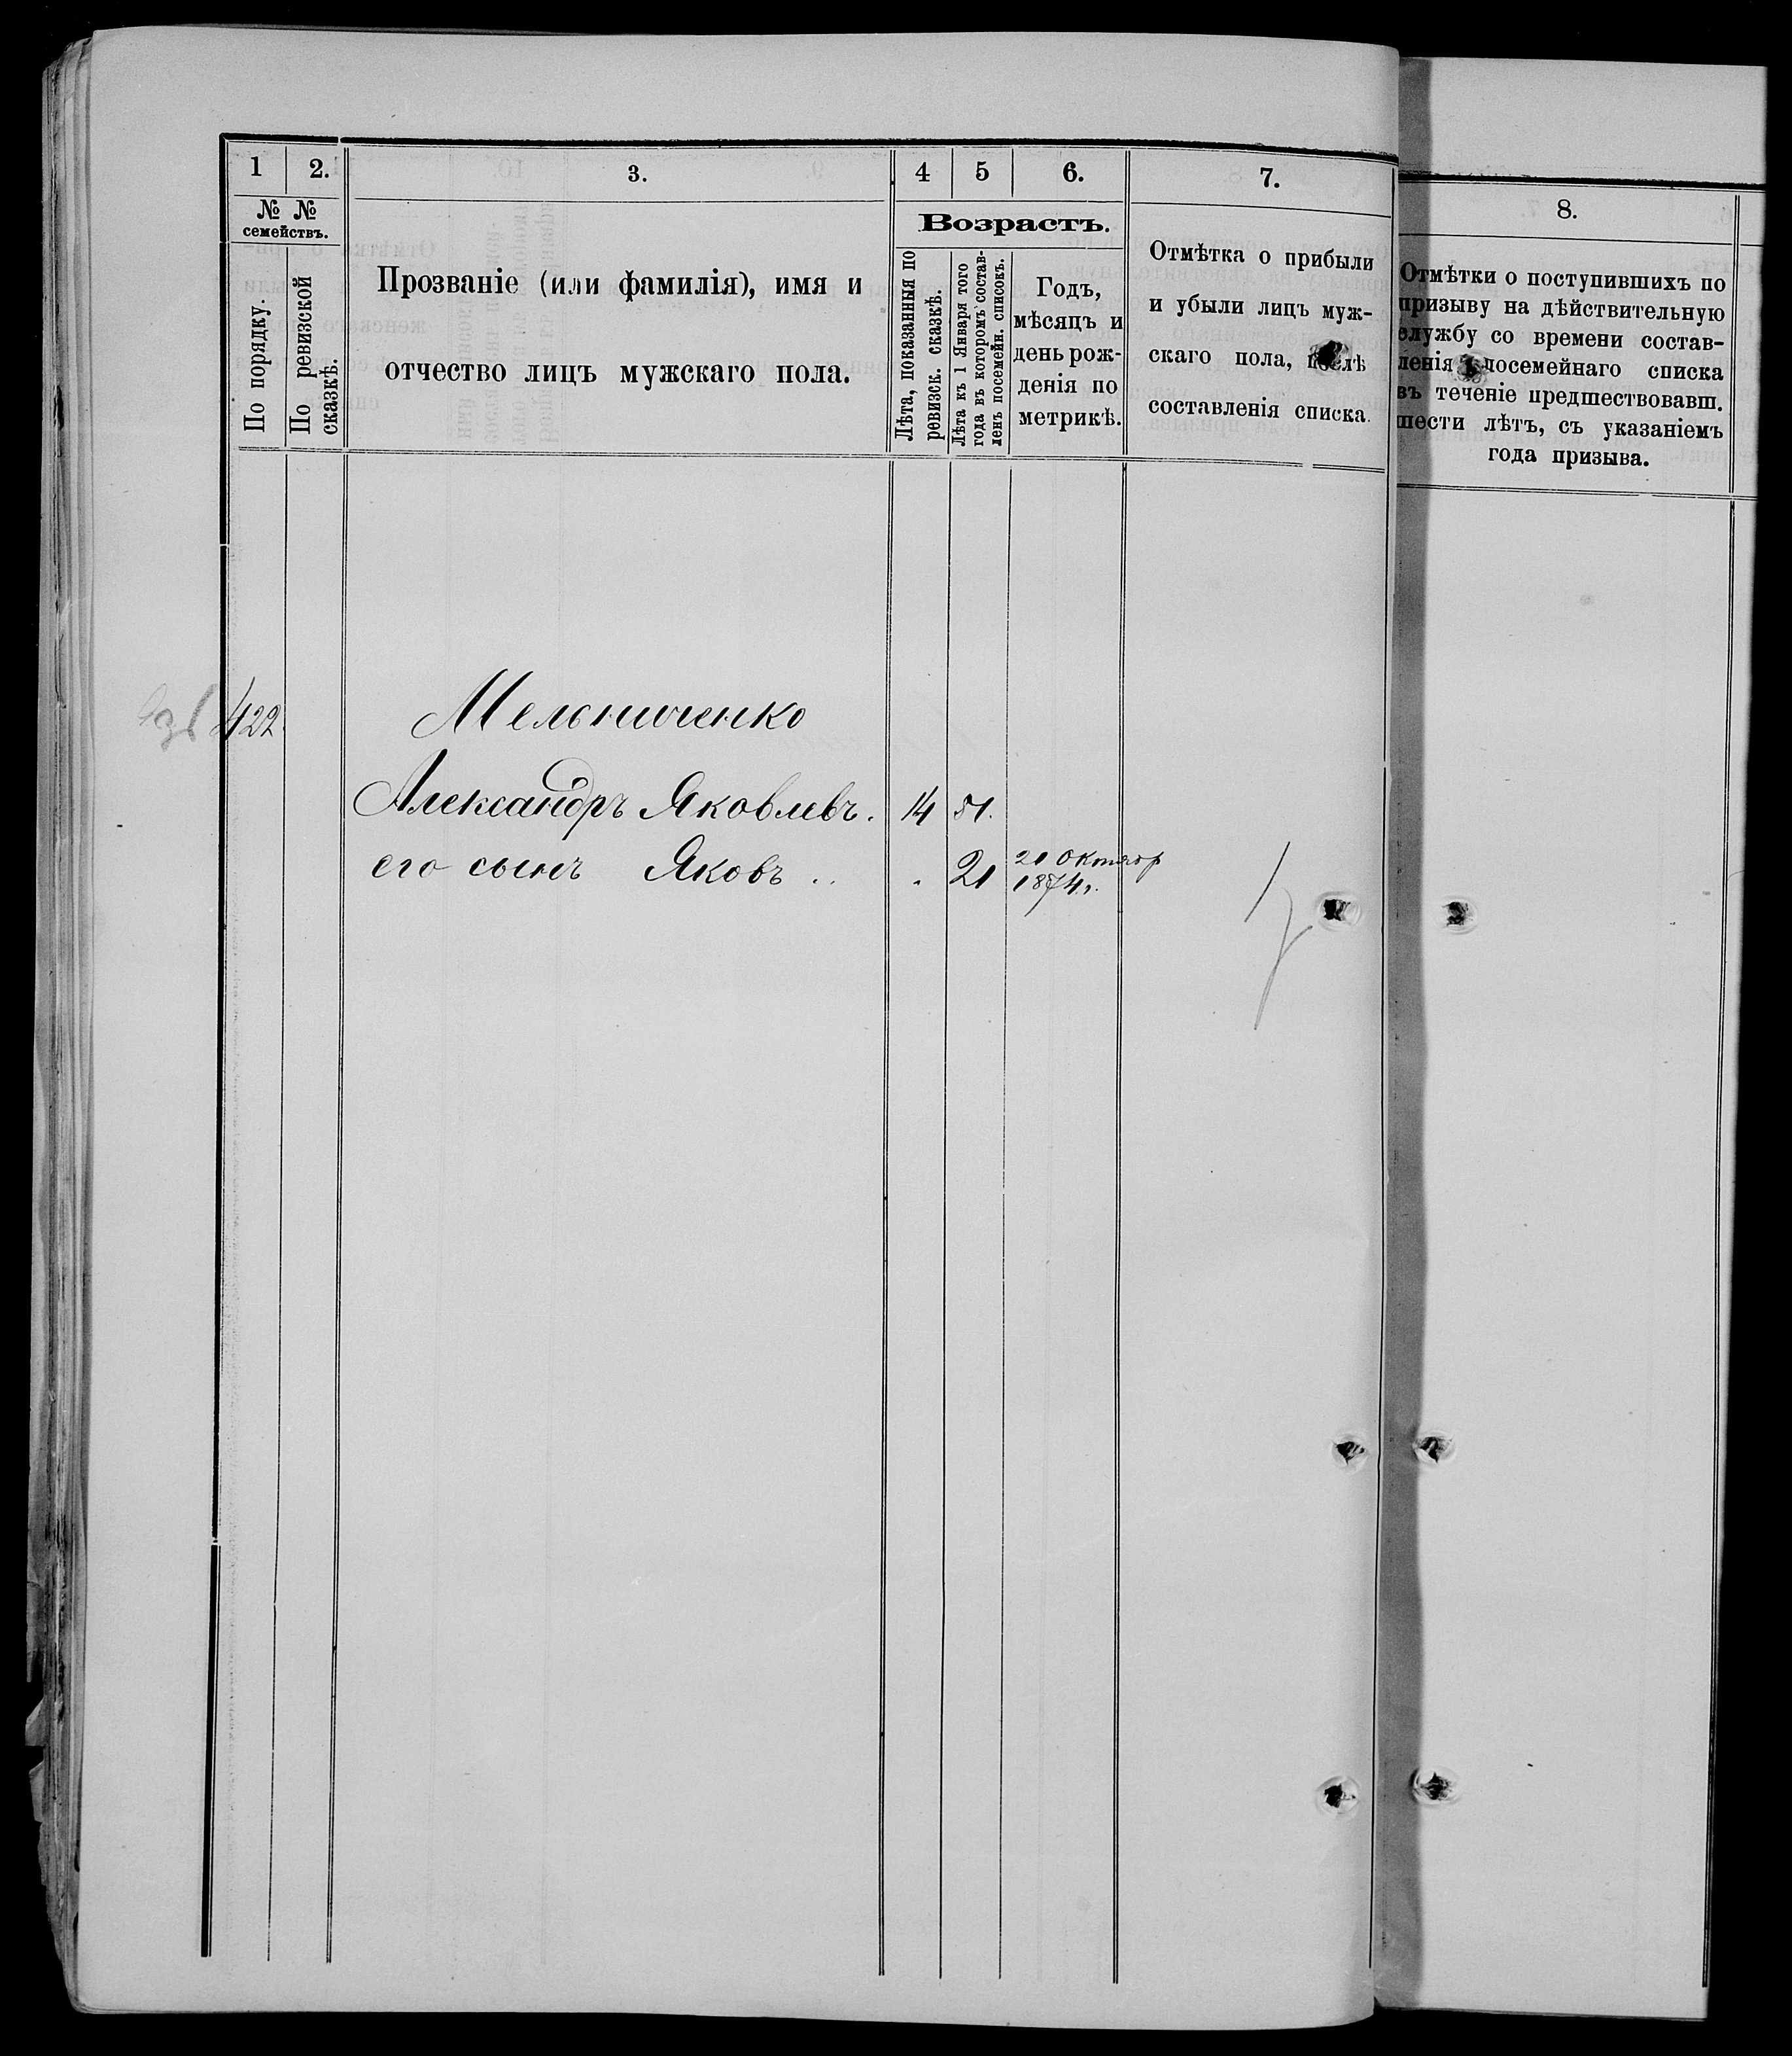 1
2.
3.
4
5
6.
7.
8.
№ №
семействъ.
По порядку.
По ревизской
сказкѣ.
Прозваніе (или фамилія), имя и
отчество лицъ мужскаго пола.
Возрастъ.
Лѣта, показанныя по
ревизск. сказкѣ.
Лѣта къ 1 Января того
года въ которомъ состав-
ленъ посемейн. списокъ.
Годъ,
мѣсяцъ и
день рож-
денія по
метрикѣ.
Отмѣтка о прибыли
и убыли лицъ муж-
скаго пола, послѣ
составленія списка.
Отмѣтки о поступившихъ по
призыву на дѣйствительную
службу со времени состав-
ленія посемейнаго списка
въ теченіе предшествовавш.
шести лѣтъ, съ указаніемъ
года призыва.
422. Мельниченко
Александръ Яковлевъ. 14 51.
его сынъ Яковъ .. . 21 21 Октябр
1874 г.